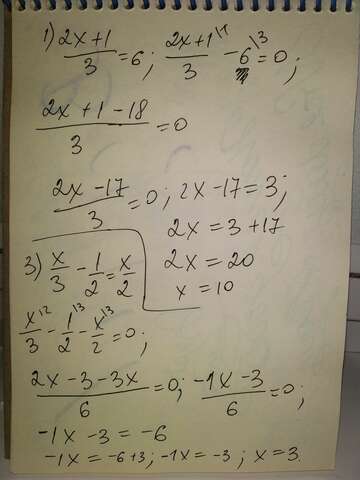 1) (2x+1)/3 = 6; (2x+1\¹)/3 - 6\³ = 0;
(2x + 1 - 18)/3 = 0
(2x - 17)/3 = 0; 2x - 17 = 3;
2x = 3 + 17
2x = 20
x = 10
3) x/3 - 1/2 = x/2
x\²/3 - 1\³/2 - x\³/2 = 0;
(2x - 3 - 3x)/6 = 0; (-1x - 3)/6 = 0;
-1x - 3 = -6
-1x = -6+3; -1x = -3; x = 3.